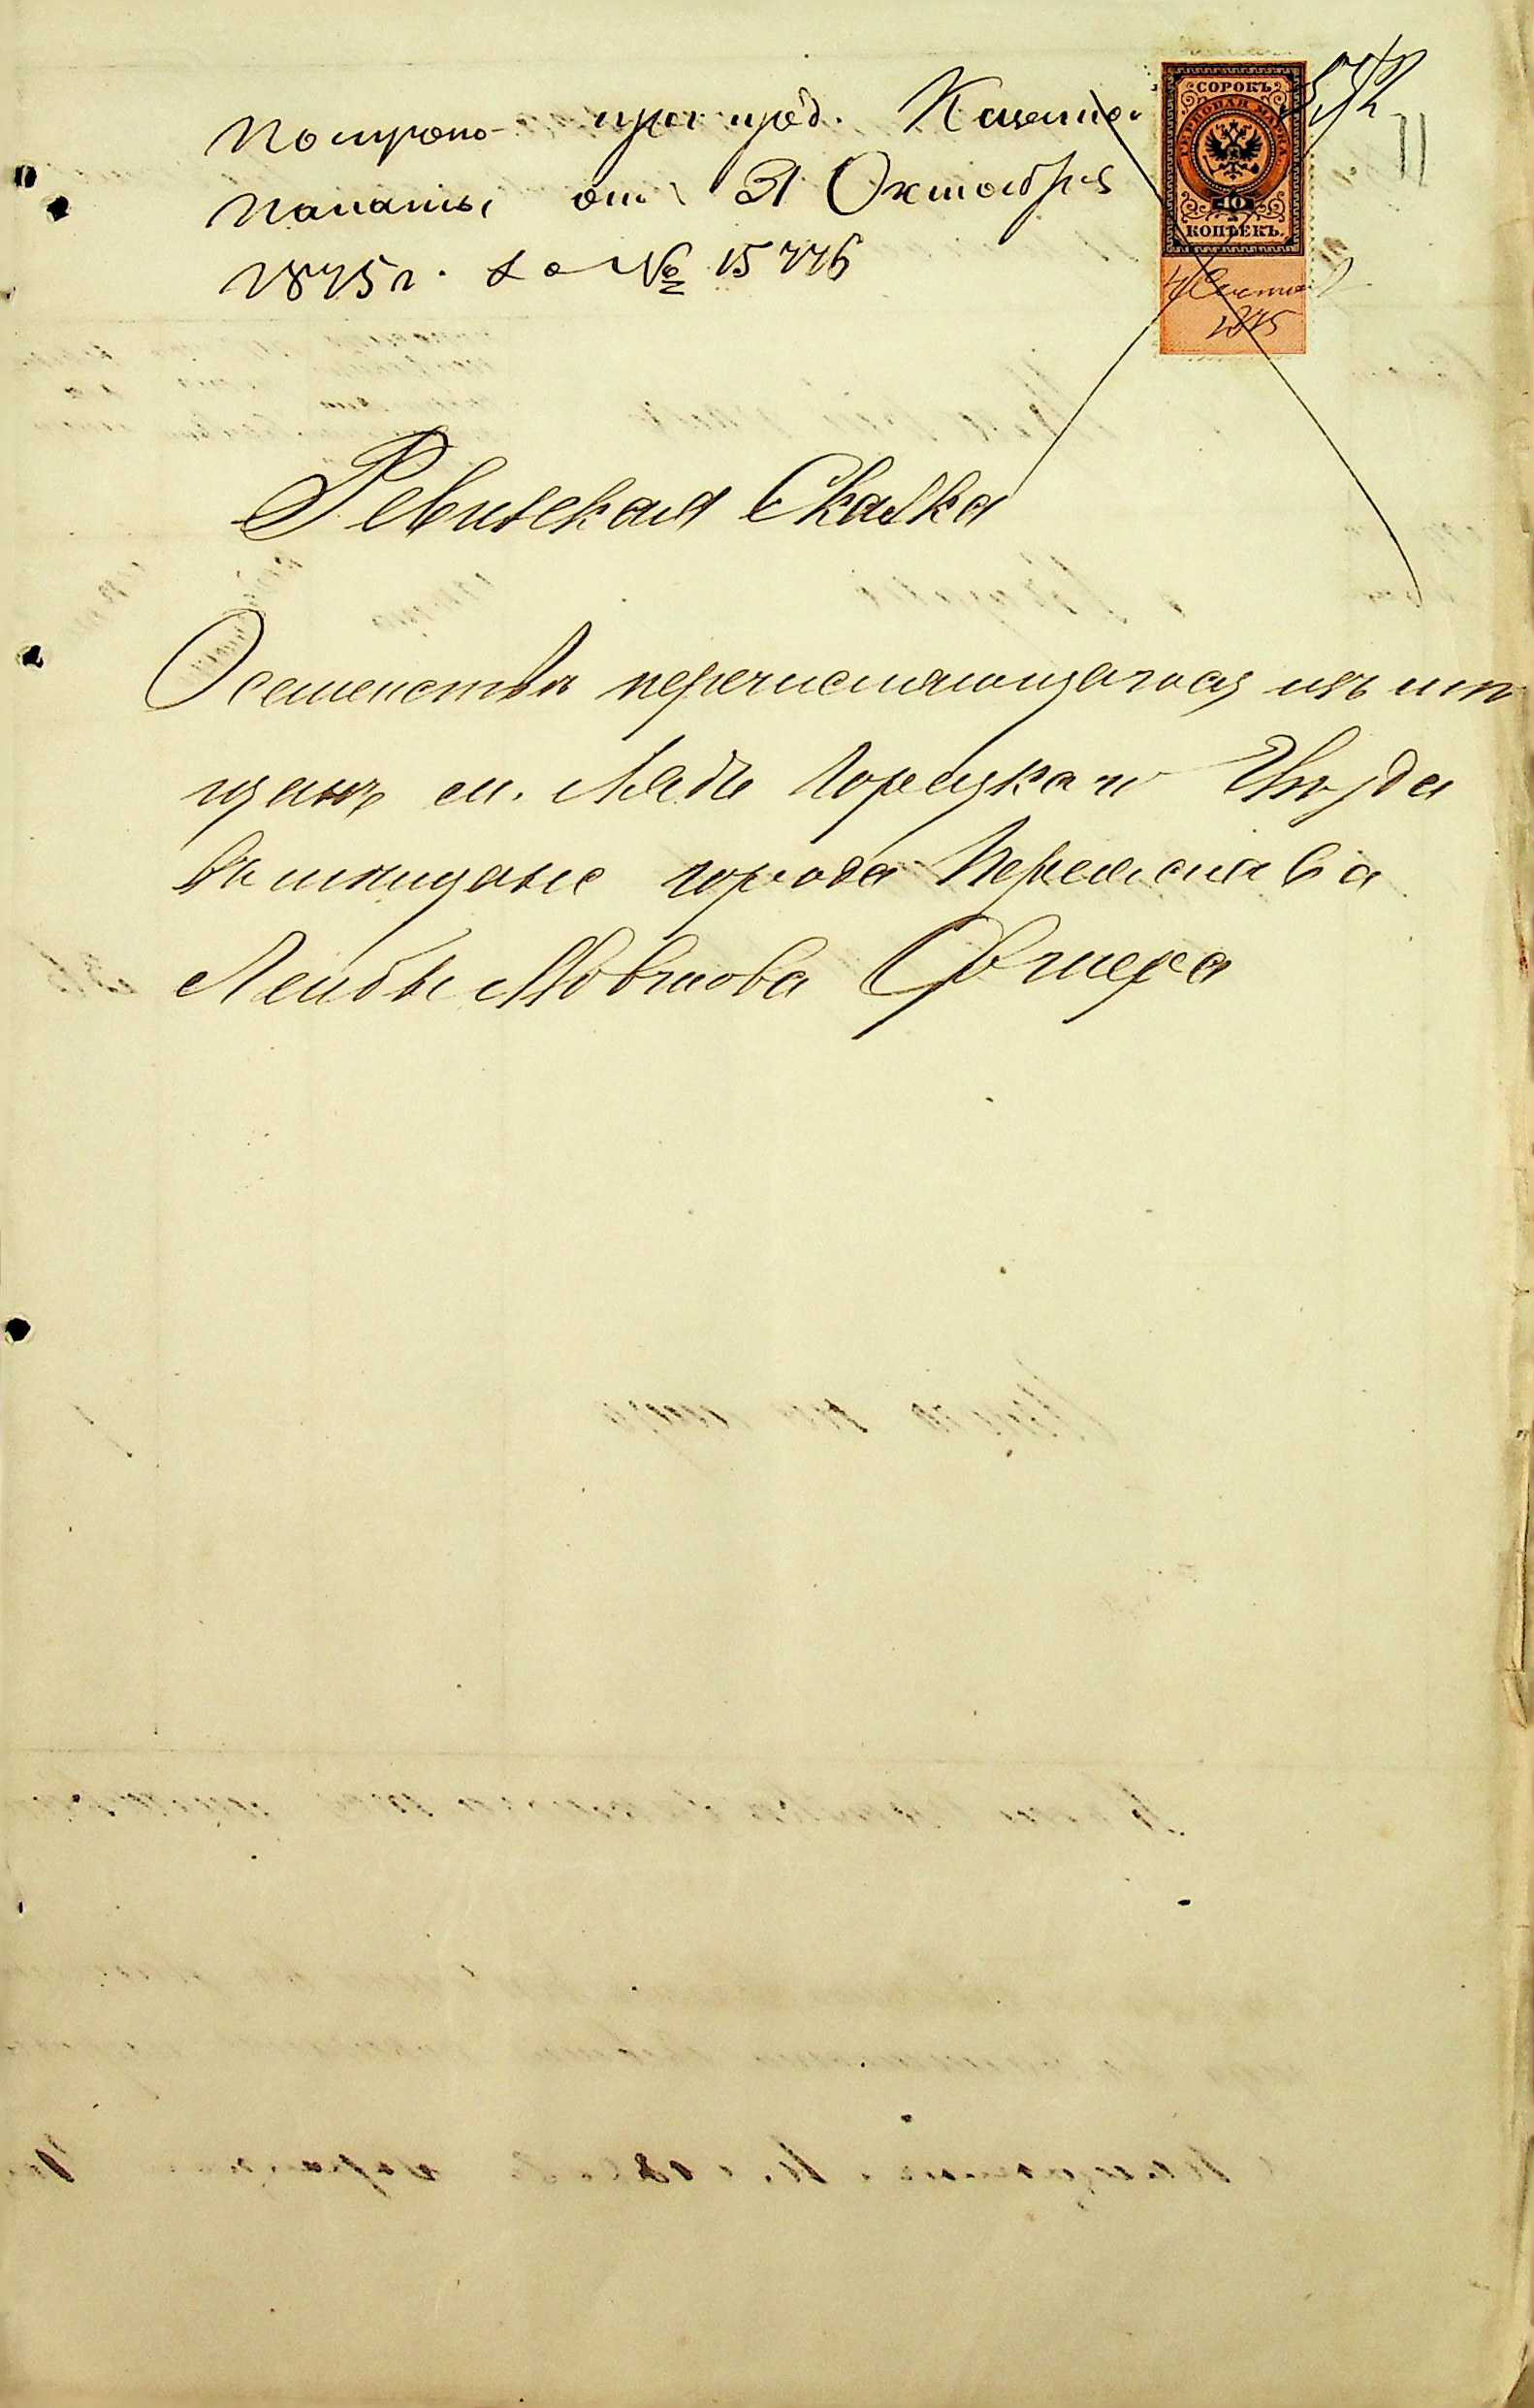 при пред. Казенной
палаты отъ 31 Октября
1875 г. за № 15776
СОРОКЪ
ГЕРБОВАЯ МАРКА
40
КОПѢЕКЪ.
1875
11
Ревизская Сказка
О семействѣ перечисляющагося изъ мѣ
щанъ м. Ляды Горецкаго Уѣзда
въ мѣщане города Переяслава
Лейбы Мовшова